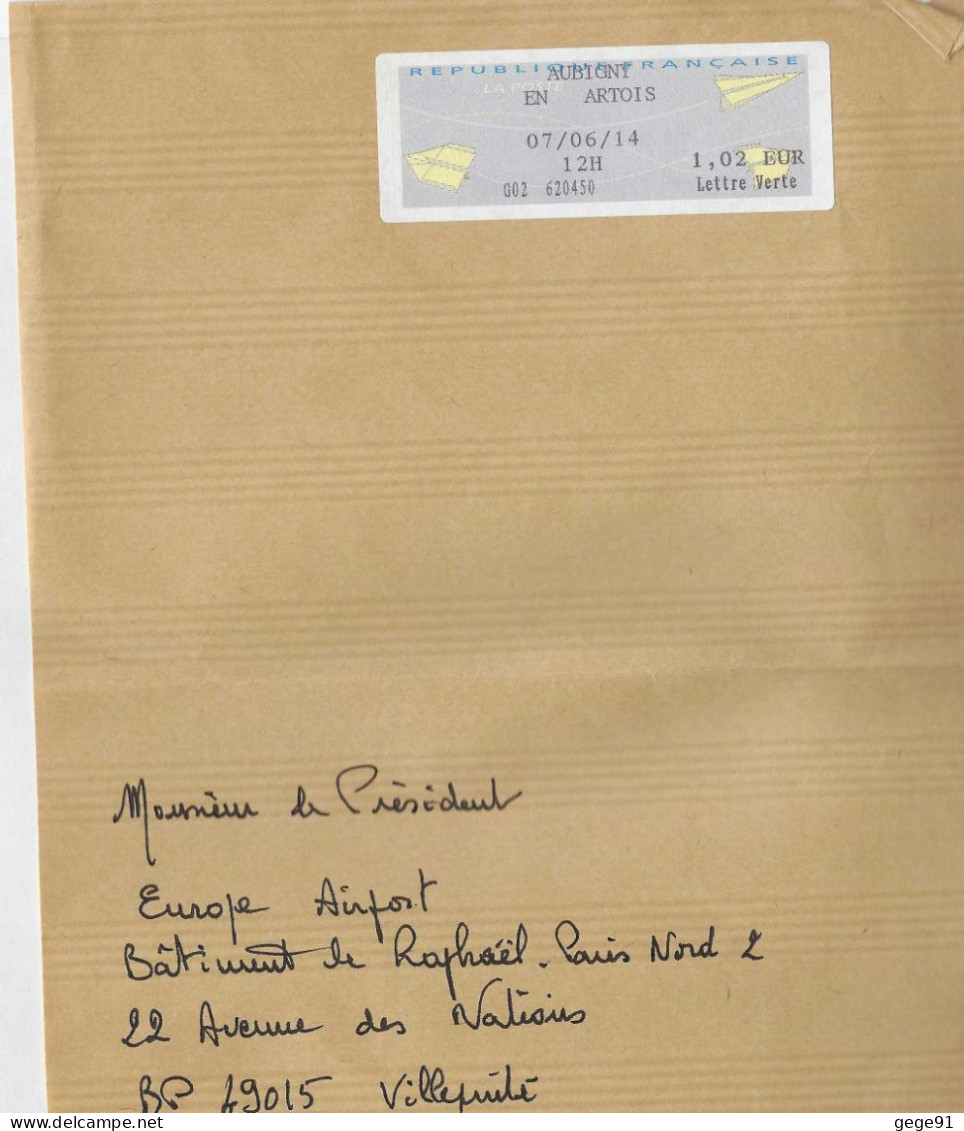 REPUBLIQUE FRANÇAISE
AUBIGNY
LA POSTE
EN ARTOIS
07/06/14
12H
1,02 EUR
G02 620450
Lettre Verte
Monsieur le Président
Europe Airport
Bâtiment le Raphaël. Paris Nord 2
22 Avenue des Nations
BP 49015 Villepinte
gege91